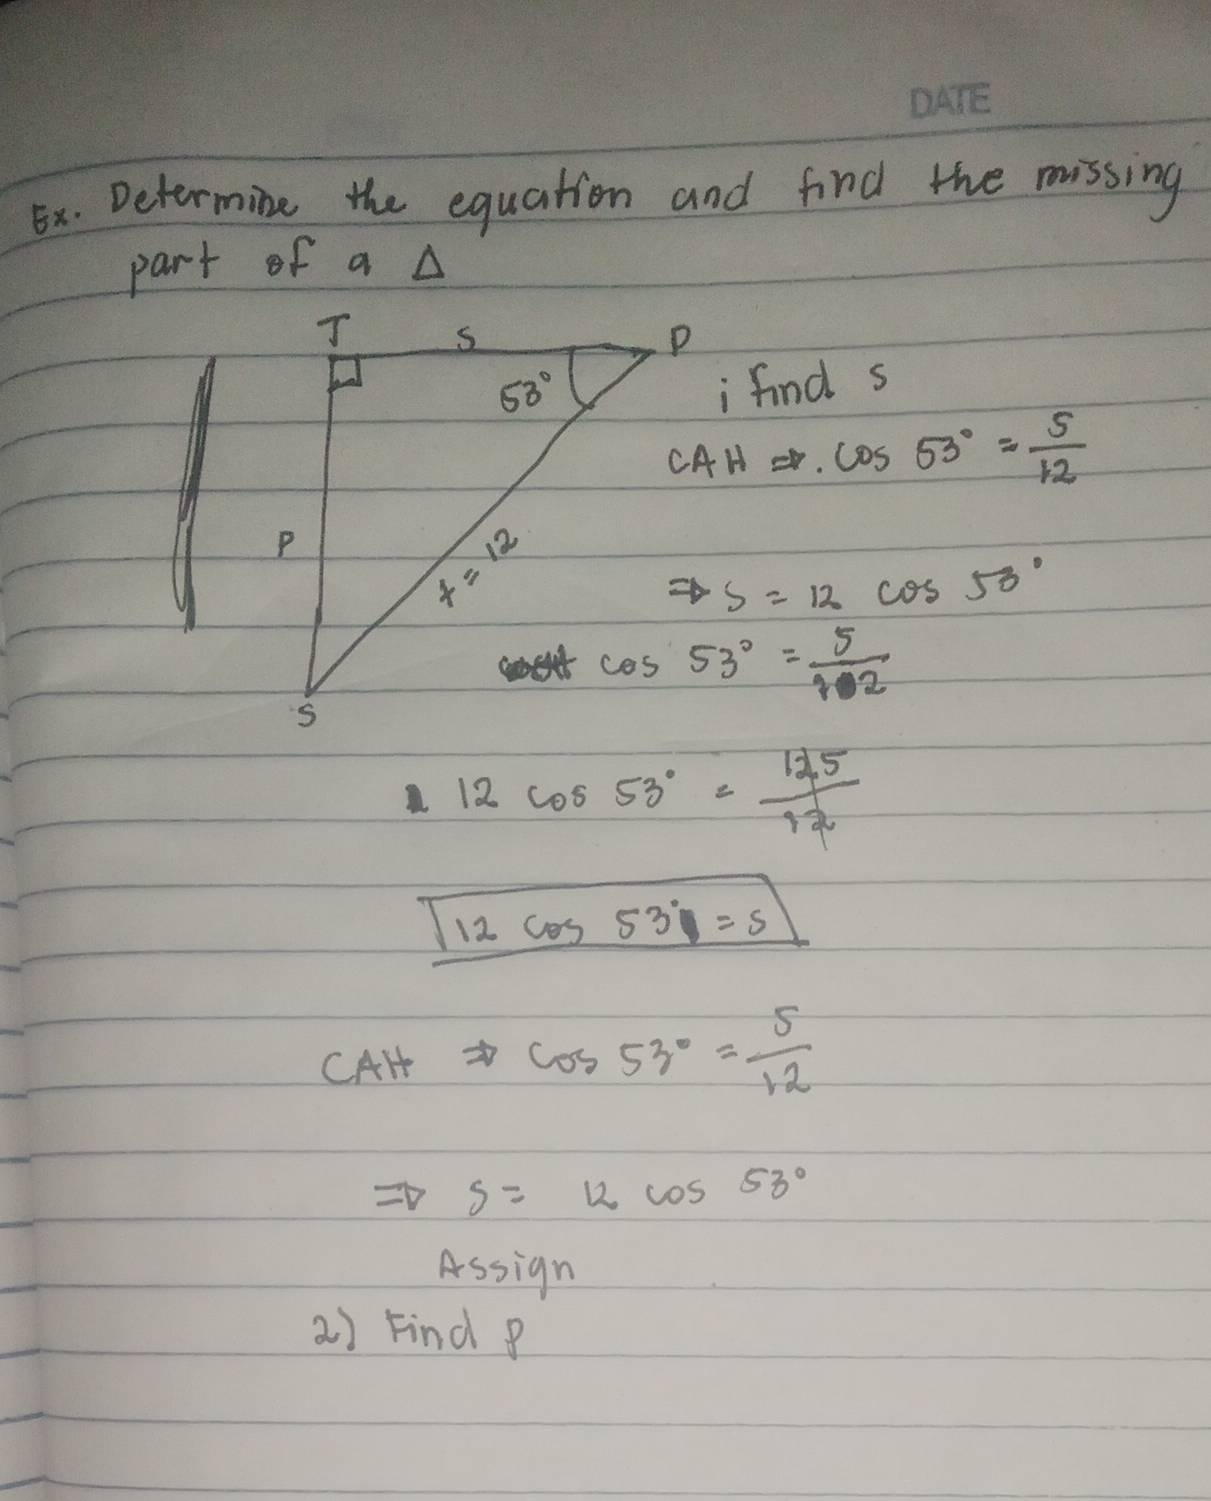 DATE
Ex. Determine the equation and find the missing
part of a Δ
T s P
53°
i find s
CAH ⇒. cos 53° = s/12
P
t = 12
⇒ s = 12 cos 53°
cos 53° = s/12
S
12 cos 53° = 12s/12
12 cos 53° = s
CAH ⇒ cos 53° = s/12
⇒ s = 12 cos 53°
Assign
2) Find p